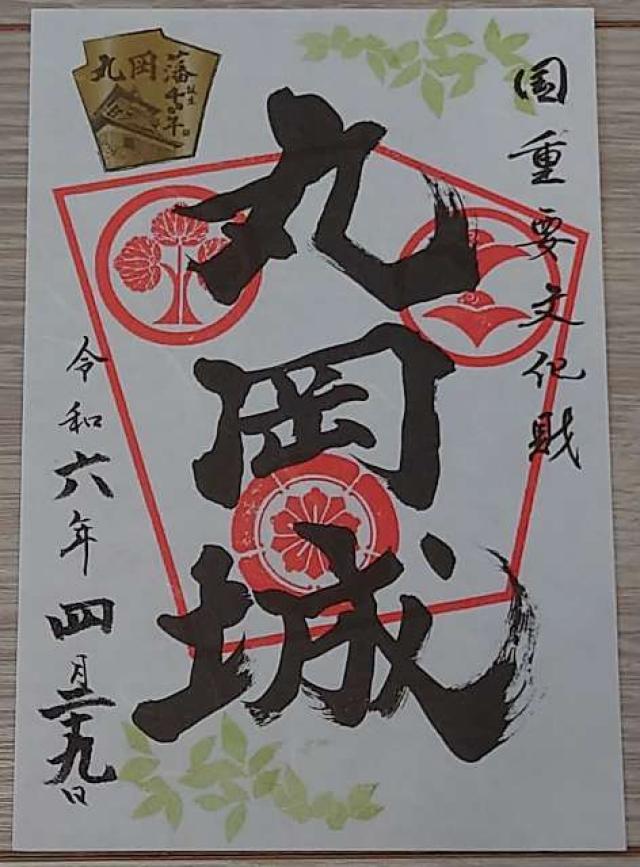 国重要文化財
丸岡城
令和六年四月二十九日
丸岡藩